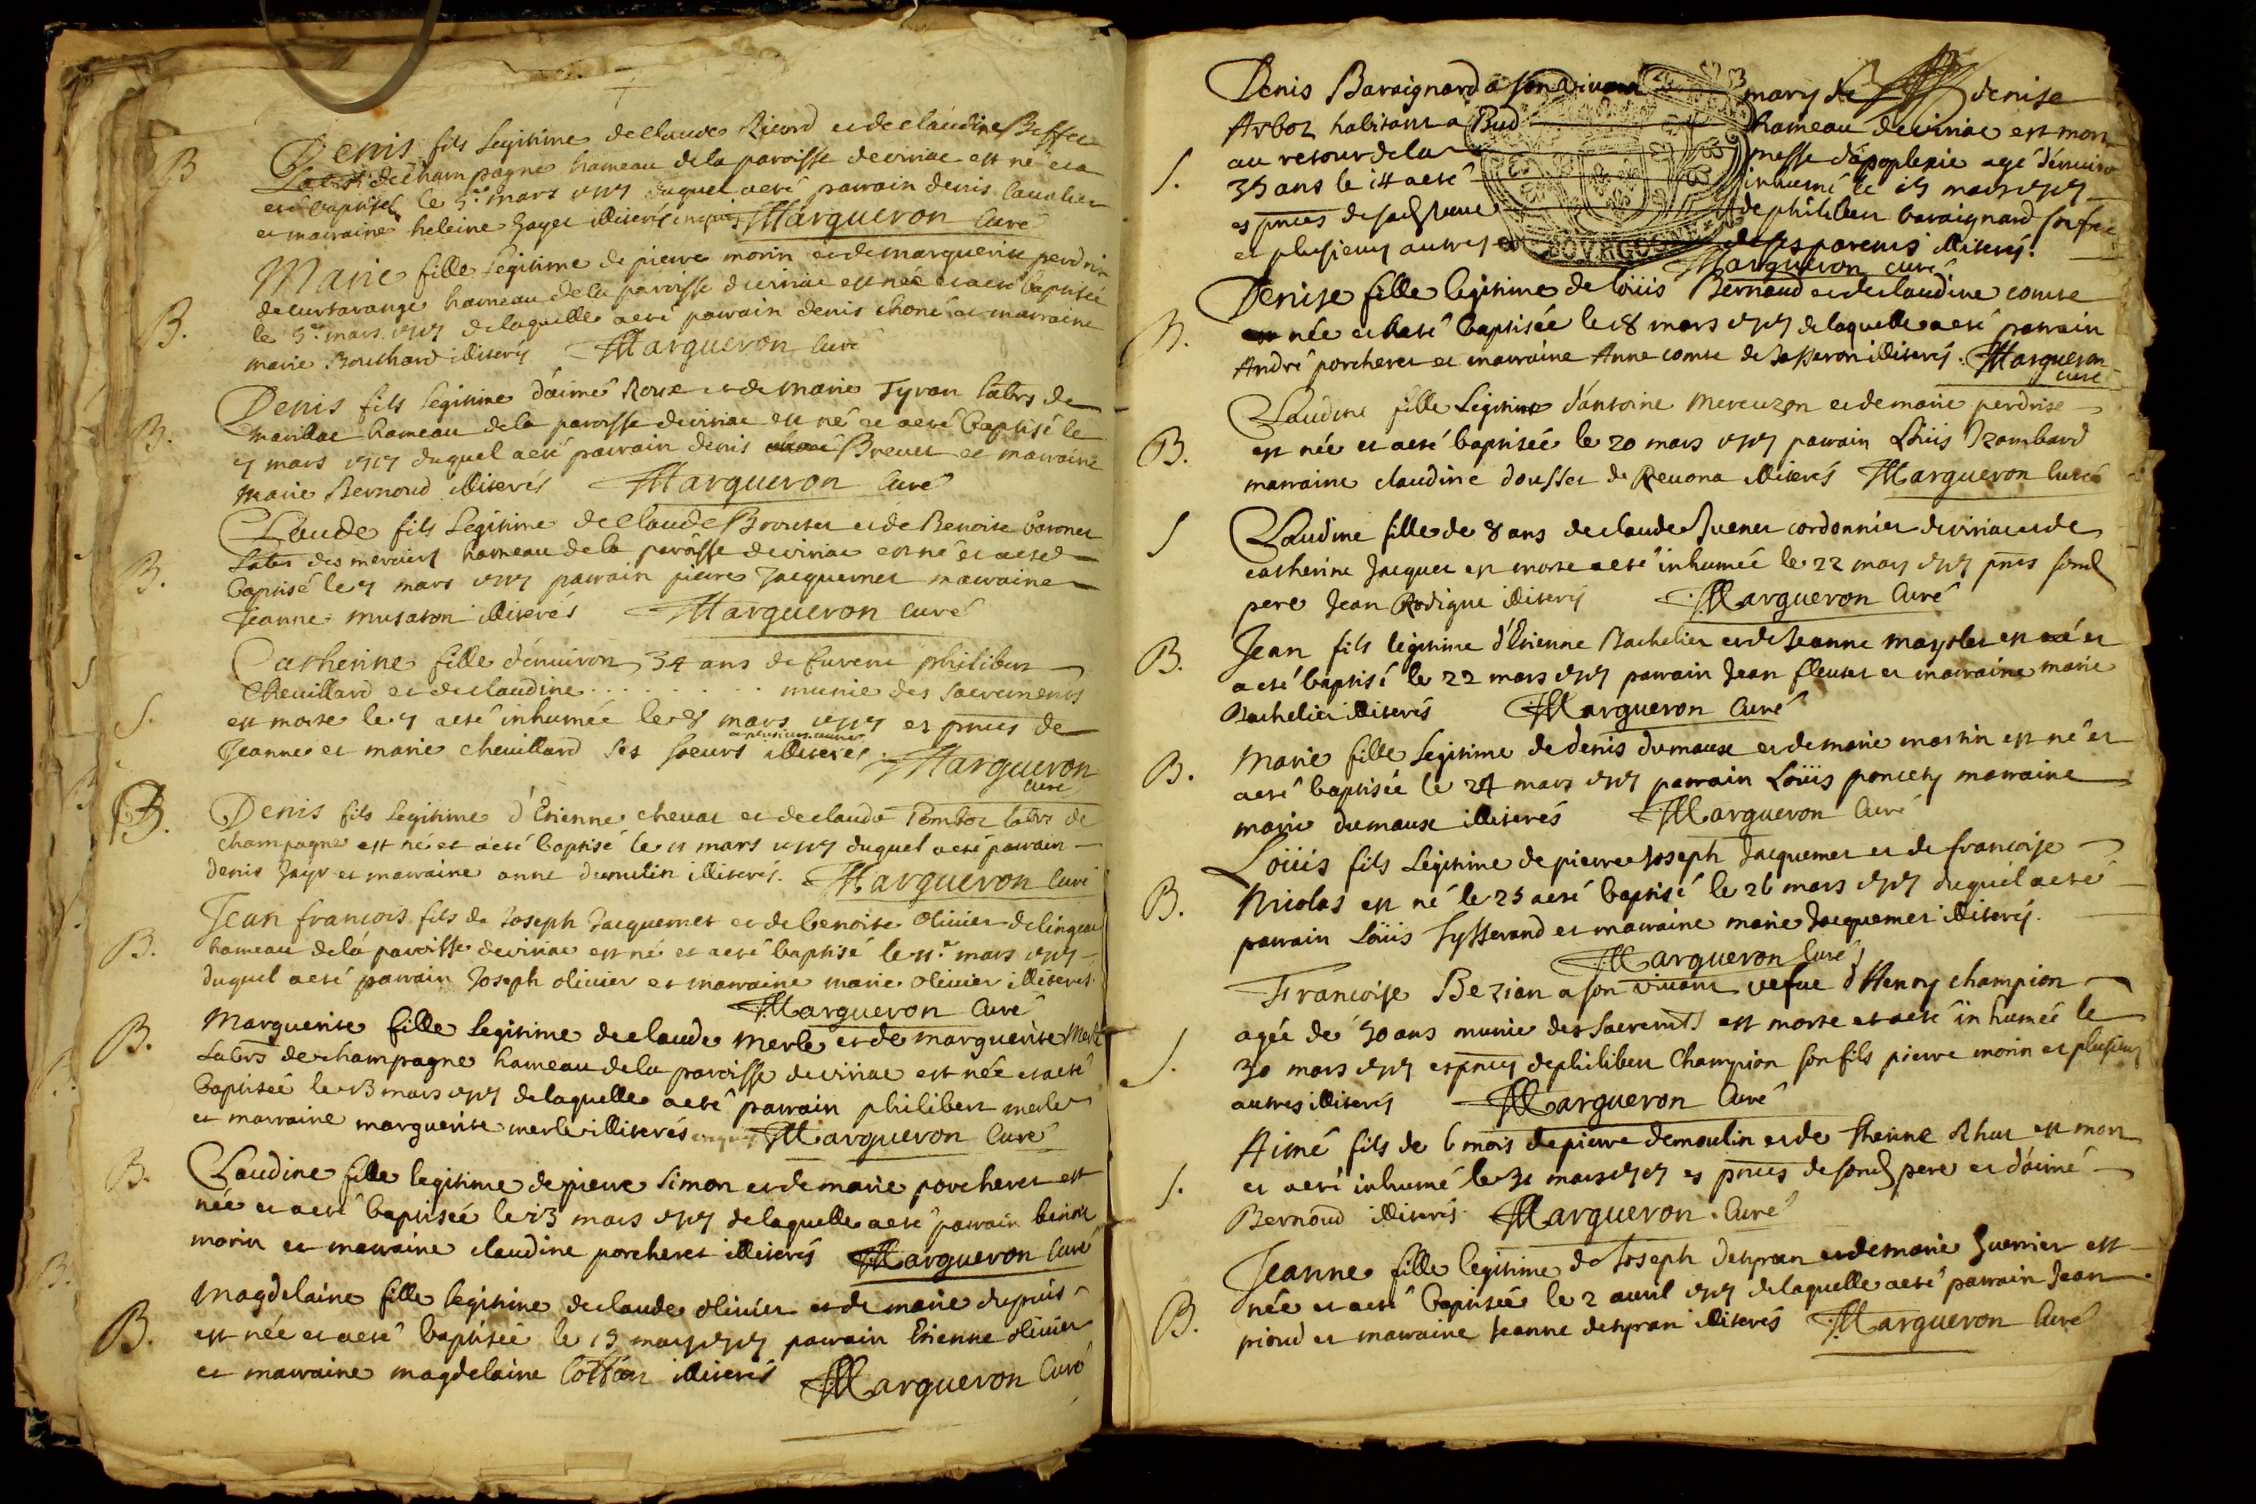 B
Denis fils legitime de claude Ricord et de claudine Beffet
Labrs de champagne hameau de la paroisse de viriac est né et a
eté baptisé le 5.e mars 1717 duquel a eté parrain denis Cavalier
et marraine heleine Jayer illiterés enquis Margueron Curé
Marie fille legitime de pierre morin et de marguerite perdrix
B.
de curtarange hameau de la paroisse de viriac est née et a eté baptisée
le 5.e mars 1717 de laquelle a eté parrain denis choné et marraine
marie Bouchard illiterés Margueron Curé
Denis fils legitime d'aimé Roux et de marie Tyran labrs de
B.
marillac hameau de la paroisse de viriac est né et a eté baptisé le
7 mars 1717 duquel a eté parrain denis Brevet et marraine
marie Bernoud illiterés Margueron Curé
Claude fils legitime de claude Brouter et de Benoite varonet
B.
Labrs des merciers hameau de la paroisse de viriac est né et a eté
baptisé le 7 mars 1717 parrain pierre Jacquemet marraine
Jeanne mutaron illiterés Margueron curé
Catherine fille d'environ 34 ans de fuvent philibert
Chevillard et de claudine . . . . . . . . . munie des sacrements
S.
est morte le 7 a eté inhumée le 8 mars 1717 es pnces de
et plusieurs autres
Jeanne et marie chevillard ses soeurs illiterés Margueron
curé
B.
Denis fils legitime d'Etienne chevat et de claude Pombot labrs de
champagne est né et a eté baptisé le 11 mars 1717 duquel a eté parrain
denis Jayr et marraine anne dumulin illiterés. Margueron Curé
Jean francois fils de Joseph Jacquemet et de benoite olivier de lingeat
B.
hameau de la paroisse de viriac est né et a eté baptisé le 11.e mars 1717
duquel a eté parrain Joseph olivier et marraine marie olivier illiterés.
Margueron Curé
B.
Marguerite fille legitime de claude merle et de marguerite merle
Labrs de champagne hameau de la paroisse de viriac est née et a eté
baptisée le 13 mars 1717 de laquelle a eté parrain philibert merle
et marraine marguerite merle illiterés enquis Margueron Curé
B.
Claudine fille legitime de pierre Simon et de marie porcheret est
née et a eté baptisée le 13 mars 1717 de laquelle a eté parrain benoit
morin et marraine claudine porcheret illiterés Margueron Curé
Magdelaine fille legitime de claude olivier et de marie dupuis
B.
est née et a eté baptisée le 13 mars 1717 parrain Etienne olivier
et marraine magdelaine Cotton illiterés Margueron Curé
Denis Baraignard a son vivant mary de denise
Arboz habitant a Bud hameau de viriac est mort
au retour de la messe d'apoplexie agé d'environ
S.
35 ans le 14 a eté inhumé le 15 mars 1717
es pnces de philibert baraignard son frere
et plusieurs autres de ses parents illiterés.
BOVRGOGNE
Margueron curé
Denise fille legitime de loüis Bernoud et de claudine comte
B.
née et a eté baptisée le 18 mars 1717 de laquelle a eté parrain
André porcheret et marraine Anne comte de Jasseron illiterés. Margueron
curé
Claudine fille Legitime d'antoine mercuzon et de marie perdrise
B.
est née et a eté baptisée le 20 mars 1717 parrain Loüis Jzombard
marraine claudine dousset de Revona illiterés Margueron Curé
S
Claudine fille de 8 ans de claude Juenet cordonnier de viriac et de
catherine Jacquet est morte a eté inhumée le 22 mars 1717 pnts sond
pere Jean Rodigue illiterés Margueron Curé
B.
Jean fils legitime d'Etienne Bachelier et de Jeanne maystet est né et
a eté baptisé le 22 mars 1717 parrain Jean fleutet et marraine marie
Bachelier illiterés Margueron Curé
B.
Marie fille legitime de denis dumaux et de marie martin est né et
a eté baptisée le 24 mars 1717 parrain Loüis poncety marraine
marie dumaux illiterés Margueron Curé
Loüis fils legitime de pierre Joseph Jacquemet et de francoise
B.
Nicolas est né le 25 a eté baptisé le 26 mars 1717 duquel a eté
parrain Loüis Tysserand et marraine marie Jacquemet illiterés.
Margueron Curé
Francoise Bezian a son vivant vefue d'Henry champion
agée de 50 ans munie des sacremts est morte et a eté inhumée le
S.
30 mars 1717 es pnces de philibert Champion son fils pierre morin et plusieurs
autres illiterés Margueron Curé
Aimé fils de 6 mois de pierre demoulin et de therine Rhut est mort
S.
et a eté inhumé le 31 mars 1717 es pnces de sond pere et d'aimé
Bernoud illiterés Margueron. Curé
Jeanne fille legitime de Joseph detyran et de marie Guerrier est
B.
née et a eté baptisée le 2 avril 1717 de laquelle a eté parrain Jean
pioud et marraine Jeanne detyran illiterés Margueron Curé